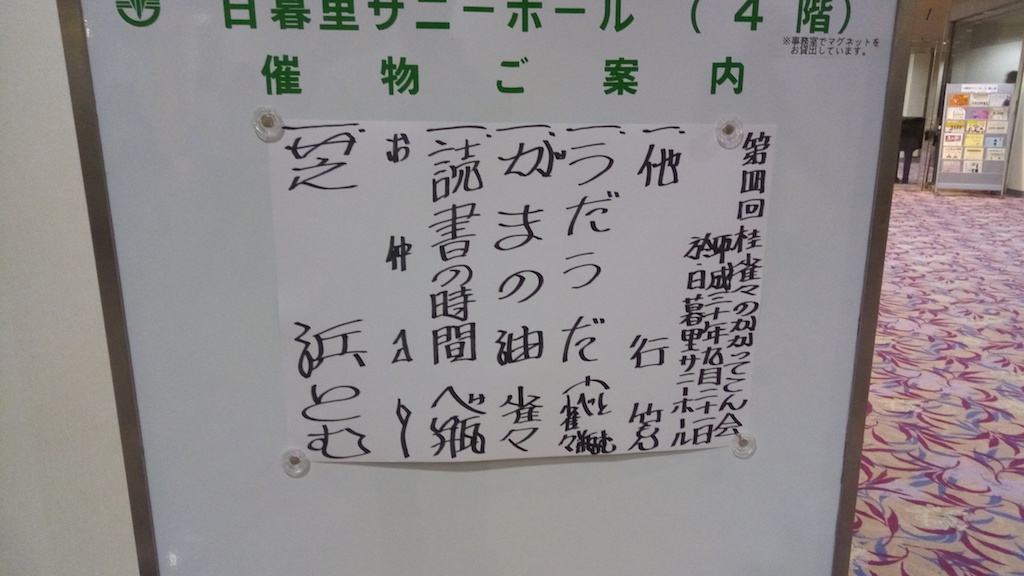 日暮里サニーホール（４階）
※事務室でマグネットを
お貸出しています。
催物ご案内
第四回 桂雀々のかかってこん会
平成三十年 二十一日
於 日暮里サニーホール
一、他行 竹
一、うだうだ 雀々
一、がまの油 雀々
一、読書の時間 べ瓶
お仲入り
一、芝浜 とむ